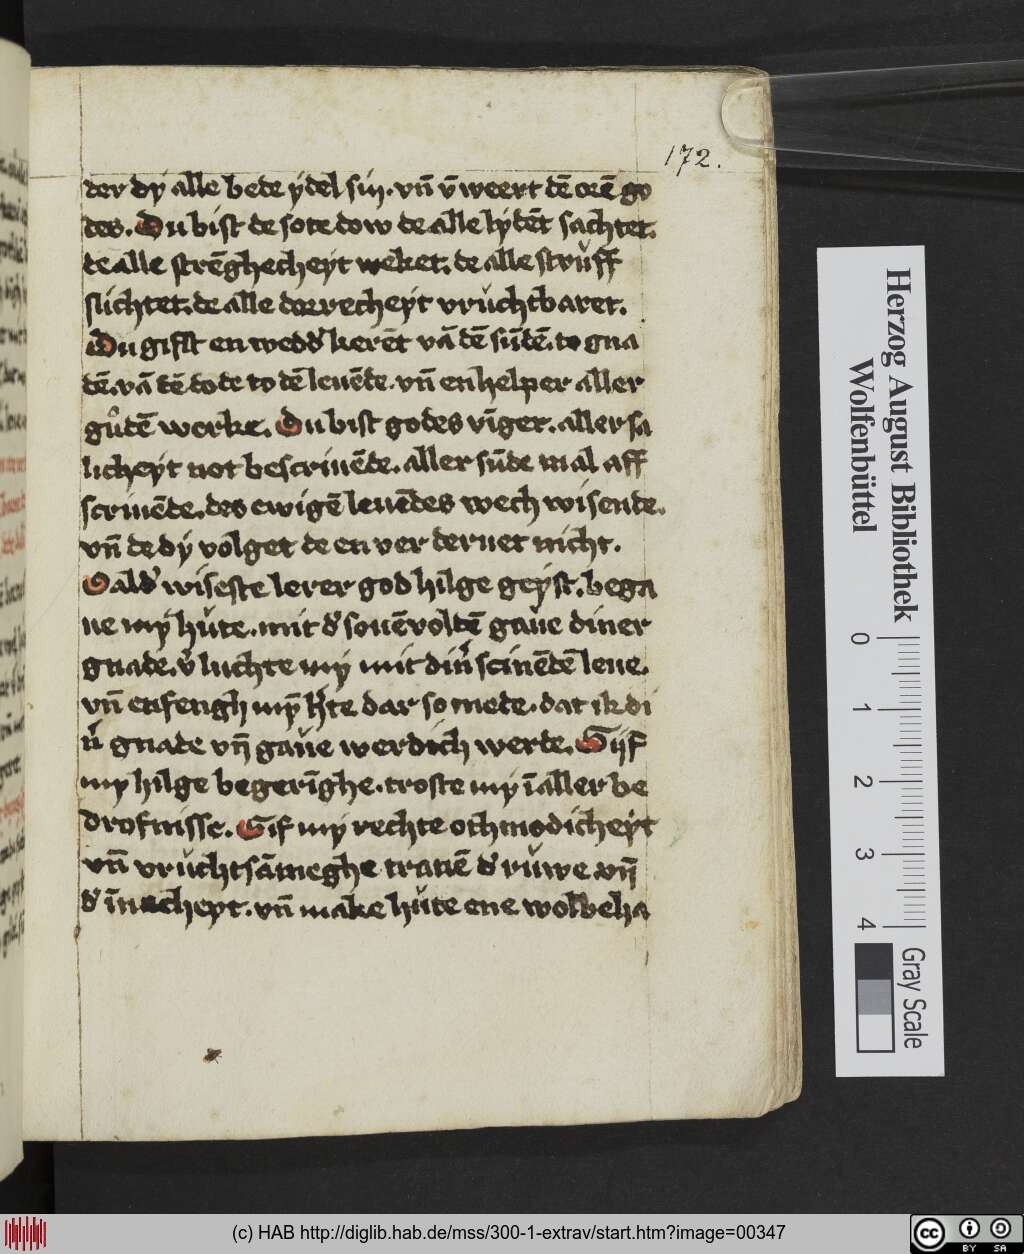 172.
der dÿ alle bede ÿdel sin. vn̄ v̄weert dē orē go
des. Du bist de sote dow de alle lÿdēt sachtet.
de alle strēghecheyt weket. de alle strůff
slichtet. de alle dorrecheyt vrůchtbaret.
Du gifft en wedd' kerēt vā dē sūdē. to gna
dē. vā dē dode to dē leuēde. vn̄ en helper aller
gůdē werke. Du bist godes viger. aller sa
licheyt not bescriuēde. aller sūde mal aff
scriuēde. des ewigē leuēdes wech wisende.
vn̄ de dÿ volget de en ver deruet nicht.
O ald' wiseste lerer god hilge geÿst. bega
ue mÿ hůte. mit d' souēvoldē gaue diner
gnade. v' luchte mÿ mit din' scinēdē leue.
vn̄ enfengh mÿ h'te dar so mede. dat ik di
n' gnade vn̄ gaue werdich werde. Gijf
mÿ hilge begerīghe. troste mÿ ī aller be
drofnisse. Gif mÿ rechte othmodicheÿt
vn̄ vrůchtsāmeghe tranē d' růwe. vn̄
d' īnncheyt. vn̄ make hůte ene wolbeha
Herzog August Bibliothek
Wolfenbüttel
0 1 2 3 4
Gray Scale
(c) HAB http://diglib.hab.de/mss/300-1-extrav/start.htm?image=00347
cc BY SA